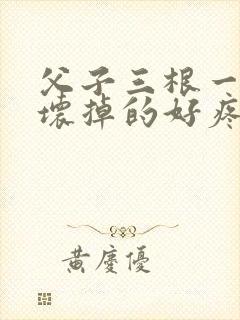 父子三根一
壞掉的好疼
黃慶優